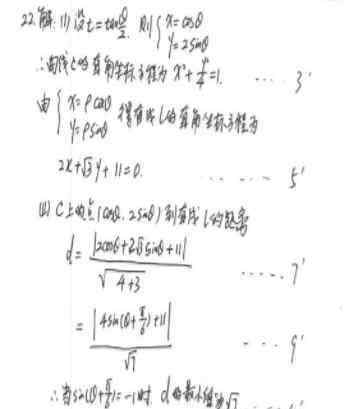 22.解：(1) 设t=tanθ/2. 则{x=cosθ
y=2sinθ
∴曲线C的直角坐标方程为 x²+y²/4=1. ····3'
由{x=ρcosθ
y=ρsinθ 得直线l的直角坐标方程为
2x+√3y+11=0. ······5'
(2) C上的点(cosθ, 2sinθ)到直线l的距离
d=|2cosθ+2√3sinθ+11|/√4+3 ·····7'
=|4sin(θ+π/6)+11|/√7 ····9'
∴当sin(θ+π/6)=-1时 d的最小值为√7